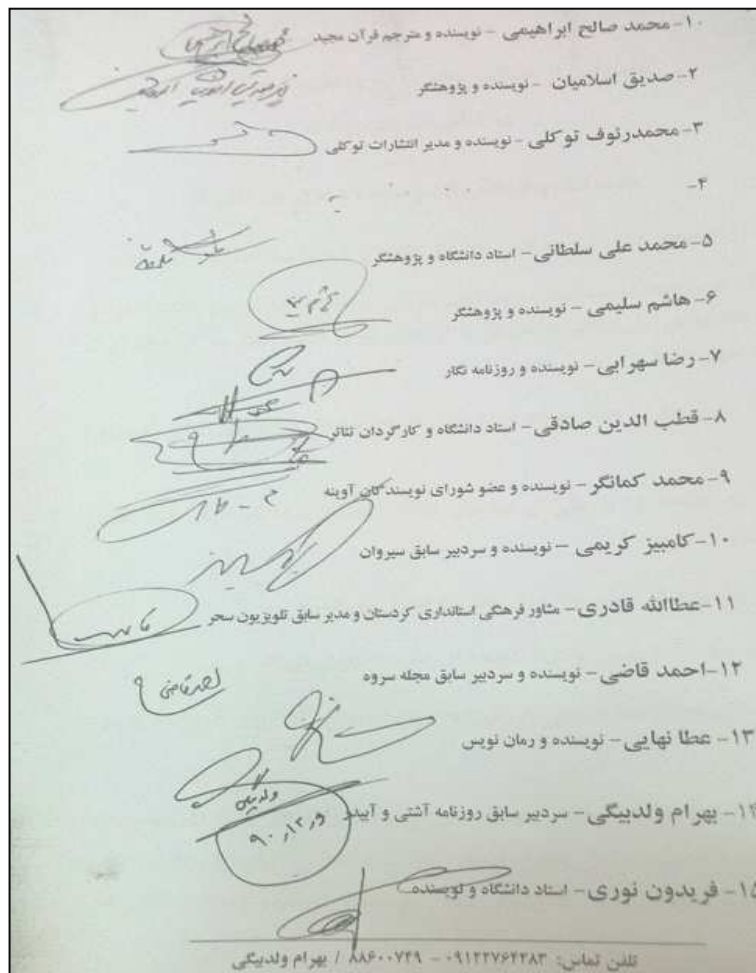 ۱۰- محمد صالح ابراهیمی - نویسنده و مترجم قرآن مجید
۲- صدیق اسلامیان - نویسنده و پژوهشگر
۳- محمدرئوف توکلی - نویسنده و مدیر انتشارات توکلی
۴-
۵- محمد علی سلطانی - استاد دانشگاه و پژوهشگر
۶- هاشم سلیمی - نویسنده و پژوهشگر
۷- رضا سهرابی - نویسنده و روزنامه نگار
۸- قطب الدین صادقی - استاد دانشگاه و کارگردان تئاتر
۹- محمد کمانگر - نویسنده و عضو شورای نویسندگان آوینه
۱۰- کامبیز کریمی - نویسنده و سردبیر سابق سیروان
۱۱- عطاالله قادری - مشاور فرهنگی استانداری کردستان و مدیر سابق تلویزیون سحر
۱۲- احمد قاضی - نویسنده و سردبیر سابق مجله سروه
احمد قاضی
۱۳- عطا نهایی - نویسنده و رمان نویس
۱۴- بهرام ولدبیگی - سردبیر سابق روزنامه آشتی و آیدر
ولدبیگی
۹۰،۱۲،۹
۱۵- فریدون نوری - استاد دانشگاه و نویسنده
تلفن تماس: ۰۹۱۲۲۷۶۴۲۸۳ - ۸۸۶۰۰۷۴۹ / بهرام ولدبیگی